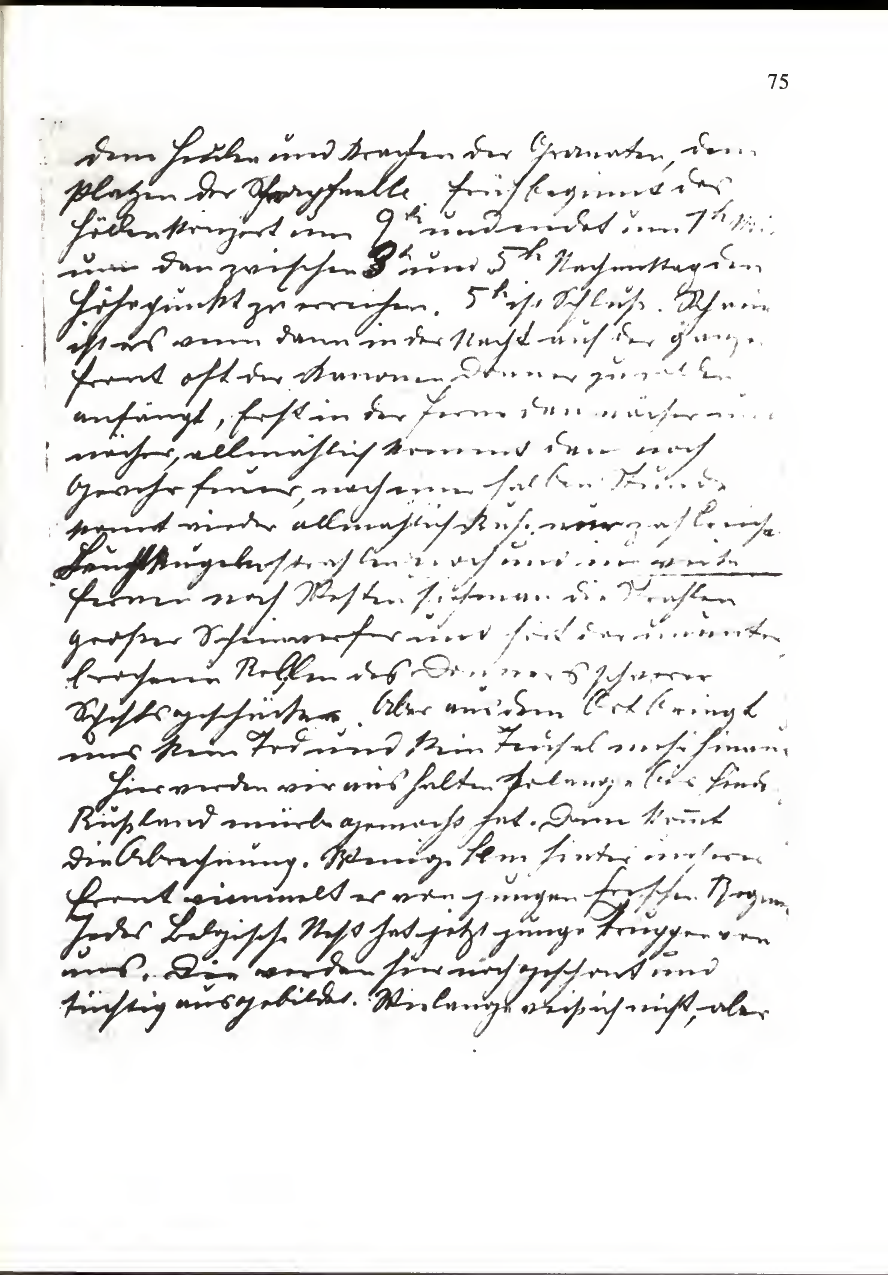 75
dem Heulen und Krachen der Granaten, dem
Platzen der Schrapnelle. Früh beginnt das
Höllenkonzert um 9 h und endet um 1 h
um dan zwischen 3 h und 5 h Nachmittag den
Höhepunkt zu erreichen. 5 h ist Schluß. Schön
ist es wenn dann in der Nacht auf der ganze
Front oft der Kanonen Donner zu rollen
anfängt, Erst in der Ferne dan näher un
näher, allmählich kommt dan noch
Gewehrfeuer, nach einer halben Stunde
komt wieder allmählich Ruhe nur zahlreiche
Leuchtkugeln strahlen noch und in weite
Fernen nach Westen sieht man die Strahlen
großer Scheinwerfer und hört das ununter
brochene Rollen des Donners schwerer
Schiffsgeschütze. Aber aus dem Ort bringt
uns kein Tod und kein Teufel mehr hinaus
Hier werden wir aushalten so lange bis Hinde
Rußland mürbe gemacht hat. Dann komt
die Abrechnung. Wenige Klm hinter unserer
Front wimmelt es von jungen frischen Regim
Jedes Belgische Nest hat jetzt junge Truppen von
uns. Die werden hier noch geschont und
tüchtig ausgebildet. Wie lange weiß ich nicht, aber